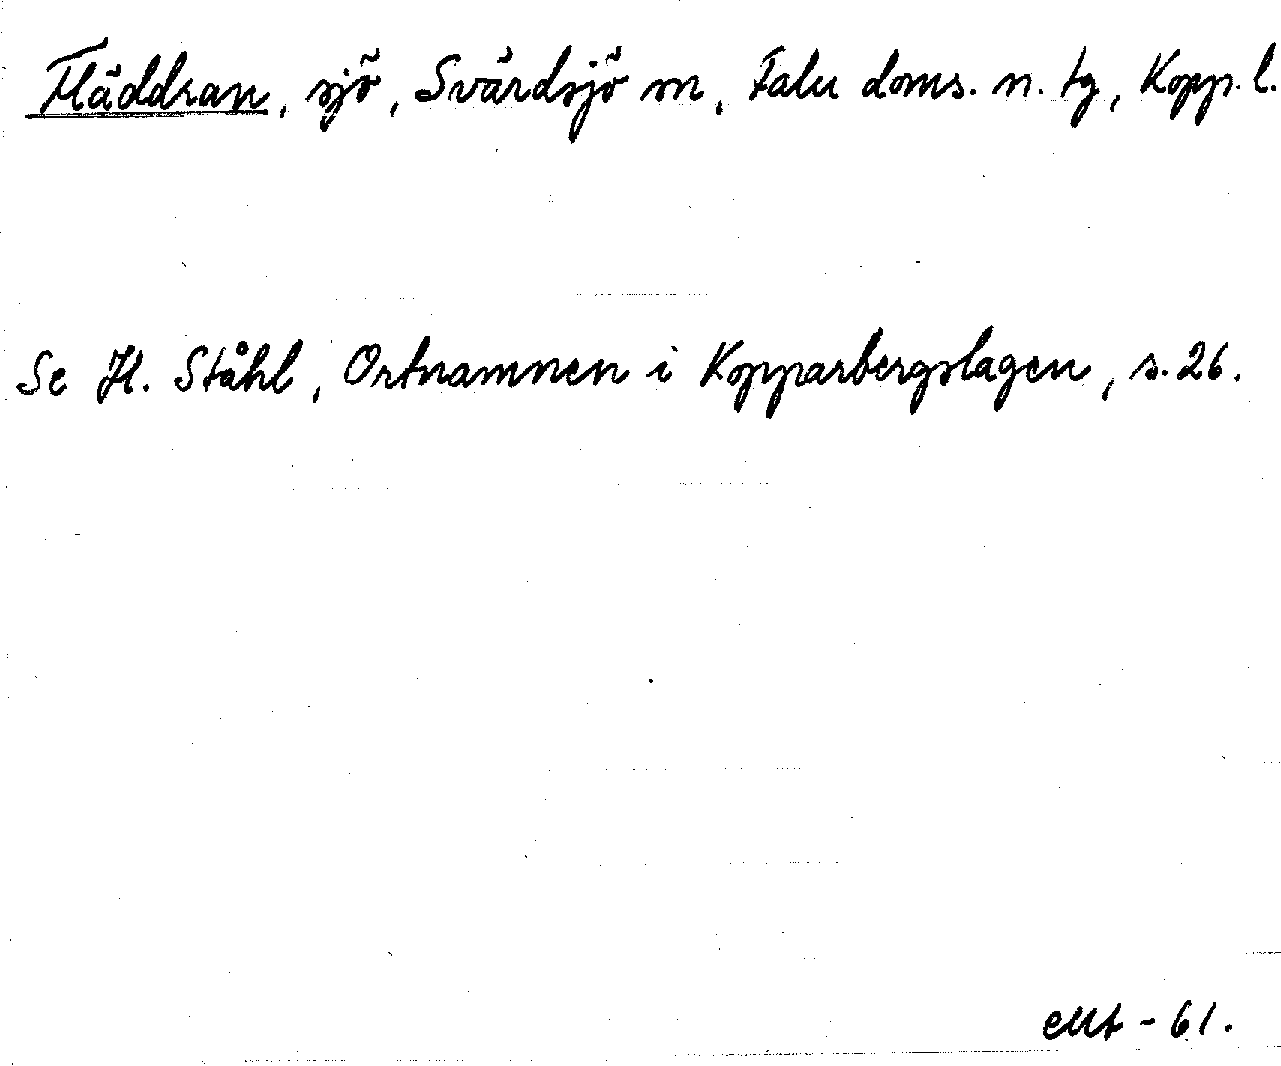 Fläddran, sjö, Svärdsjö sn, Falu doms. n. tg, Kopp. l.
Se H. Ståhl, Ortnamnen i Kopparbergslagen, s. 26.
-61.